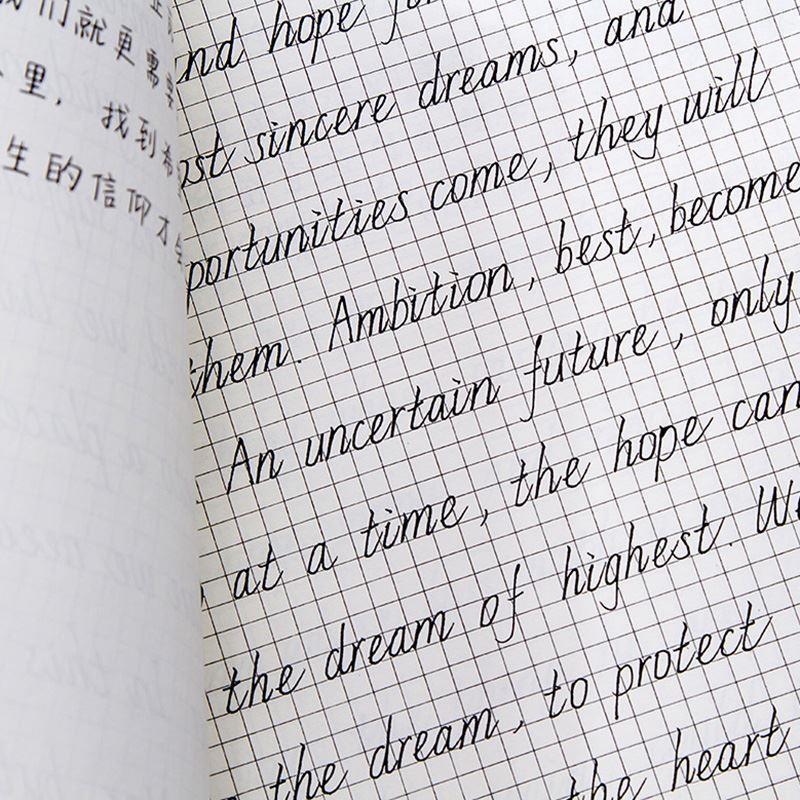 们就更需
里, 找到希
生的信仰才
and hope
sincere dreams, and
come, they will
them. Ambition, best, become
An uncertain future, only
at a time, the hope can
the dream of highest.
the dream, to protect
the heart